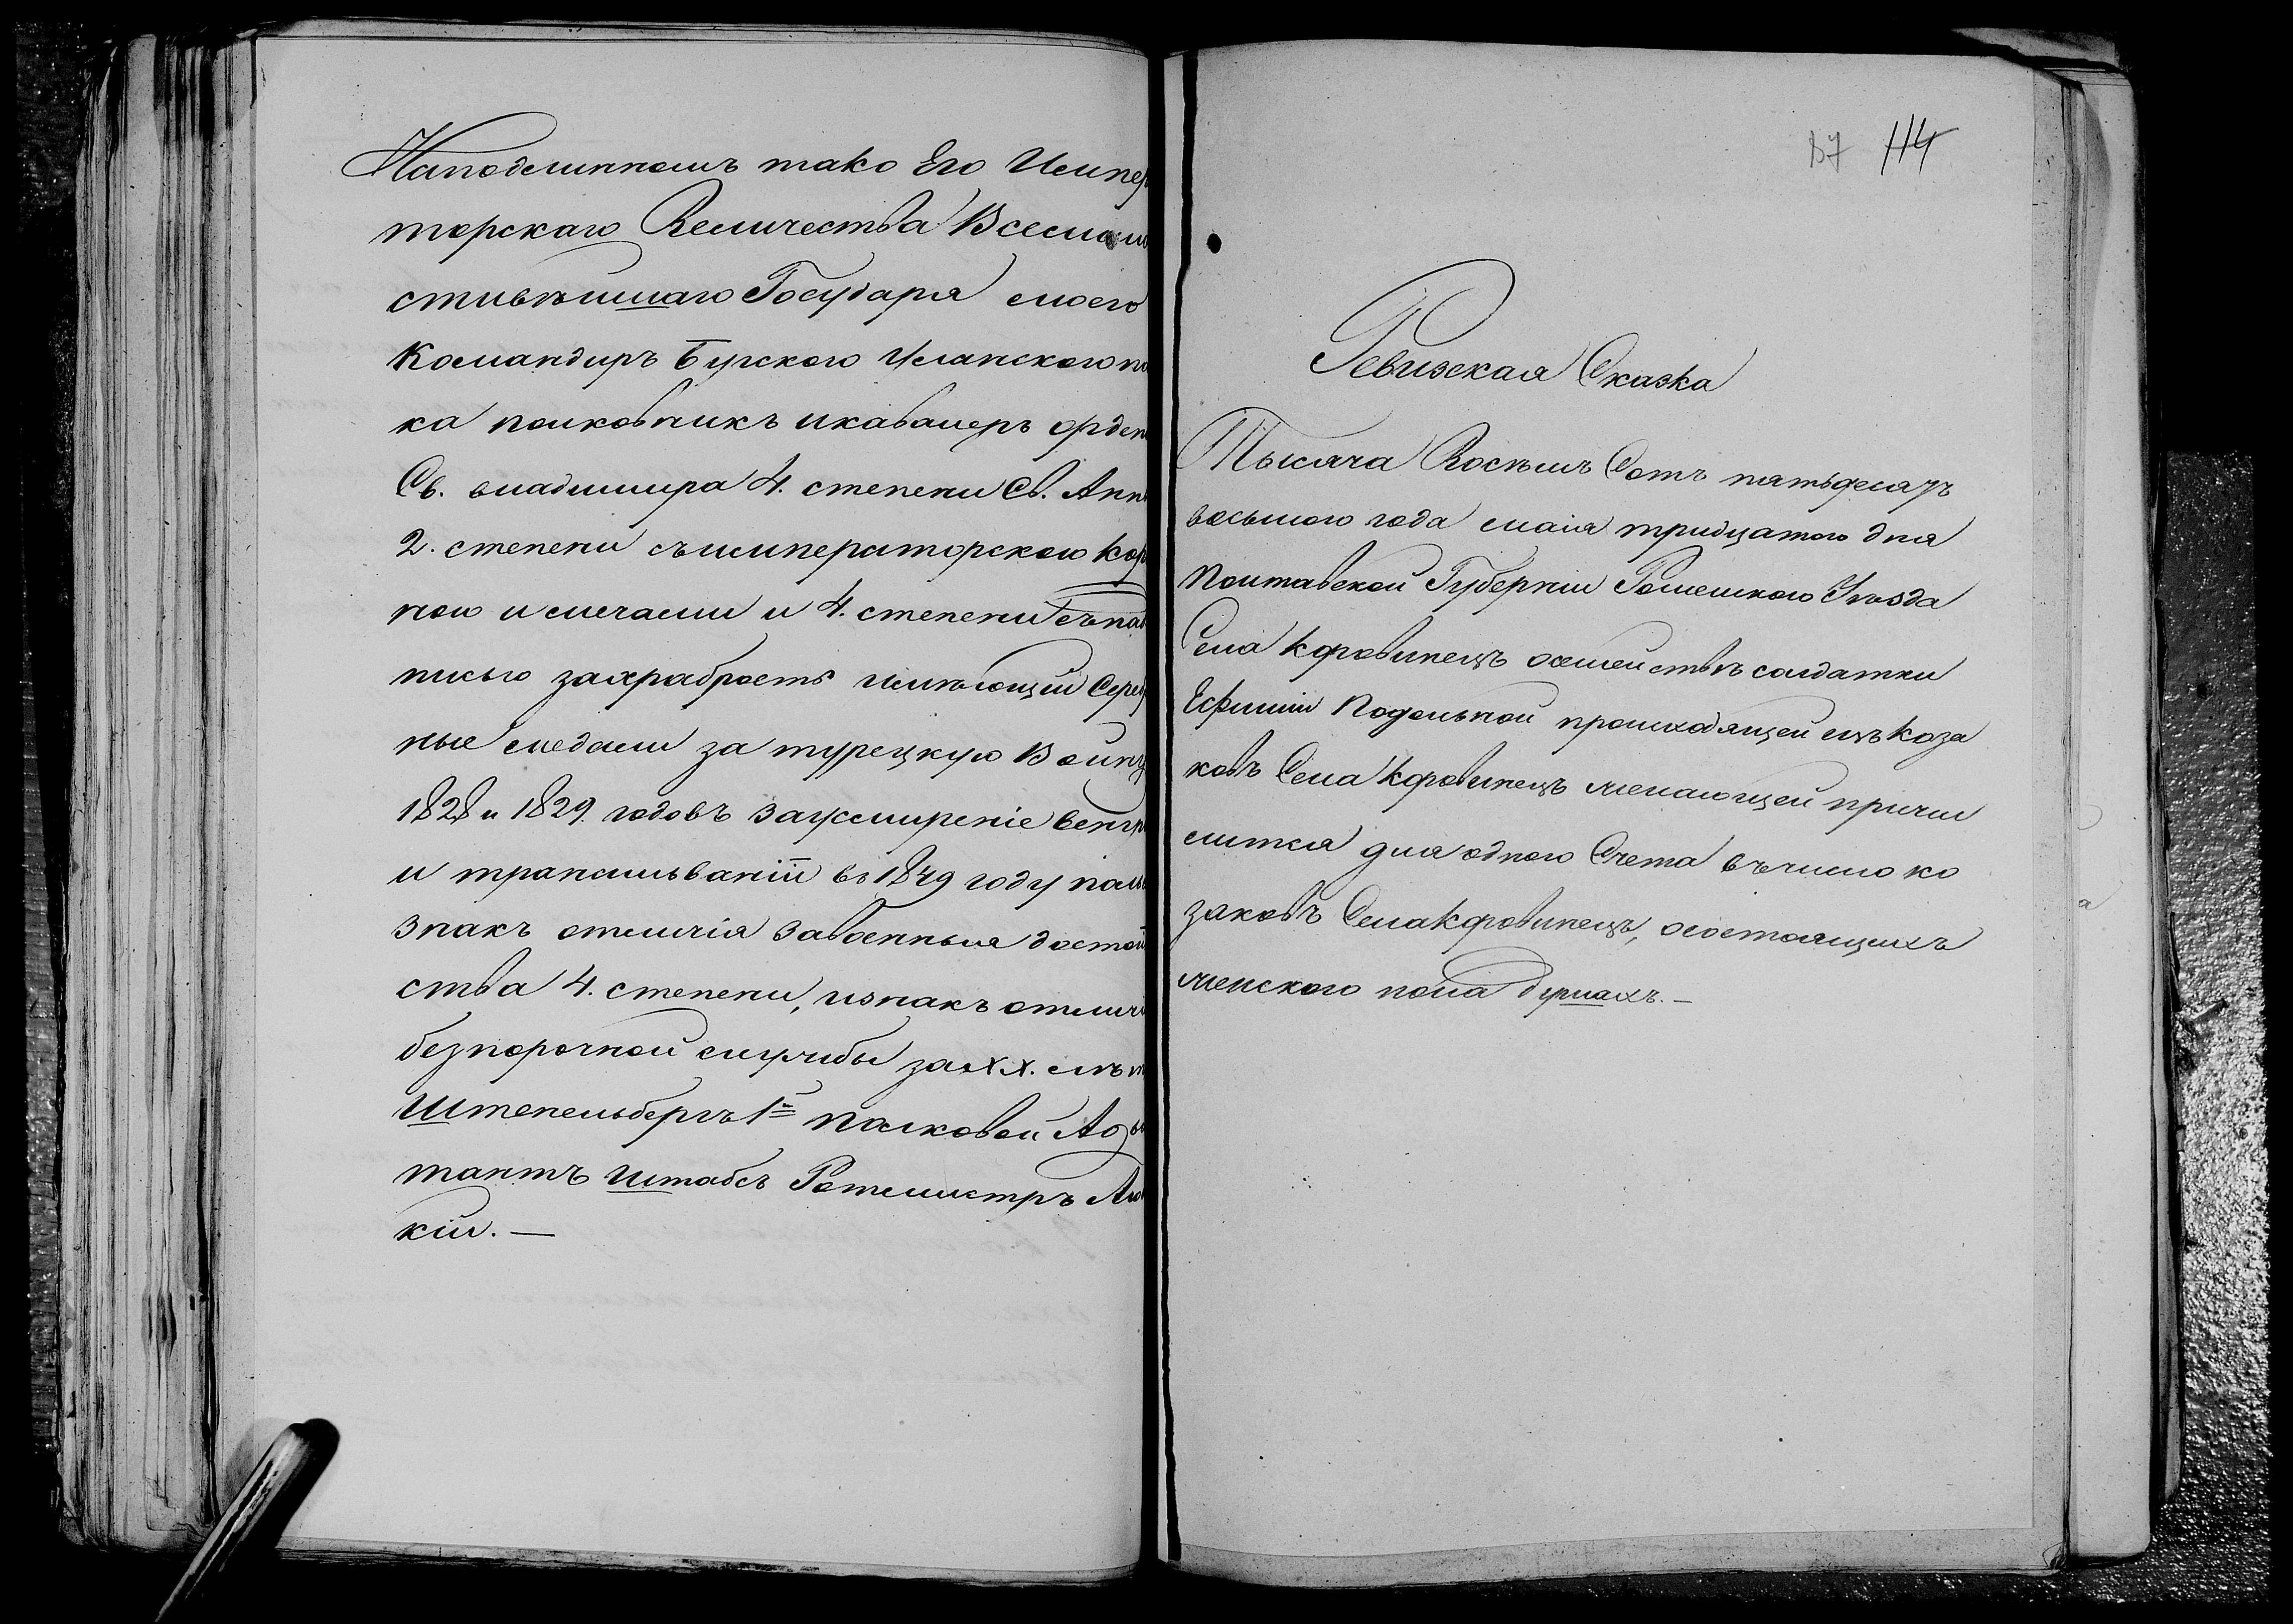 Наподлинномъ тако Его Импер
торскаго Величества Всемило
стивѣйшаго Государя моего
Командиръ Бугского Уланского по
ка полковникъ икавалеръ орден
Св. владимира 4. степени Св. Анн
2. степени съимператорскою кор
ною имечами и 4. степени съна
писью захрабрость имѣющій Сереб
ные медали за турецкую Войну
1828 и 1829 годовъ заусмиреніе венгр
и трансильваніи въ 1849 году поль
знакъ отличія завоенныя достои
ства 4. степени, изнакъ отличі
безпорочной службы за XX. лѣт
Штепельбергъ 1й полковой Адъ
тантъ штабсъ Ротмистръ
кій. —
57 114
Ревизская Сказка
Тысяча Восѣмъ Сотъ пятьдесятъ
восьмого года маія тридцатого дня
Полтавской Губерніи Роменского Уѣзда
Села Коровинецъ осемействѣ солдатки
Ефиміи Подольной происходящей изъ коза
ковъ Села Коровинецъ желающей причи
слится для одного Счета въчисло ко
заковъ Села Коровинецъ, осостоящихъ
женского пола душахъ. —